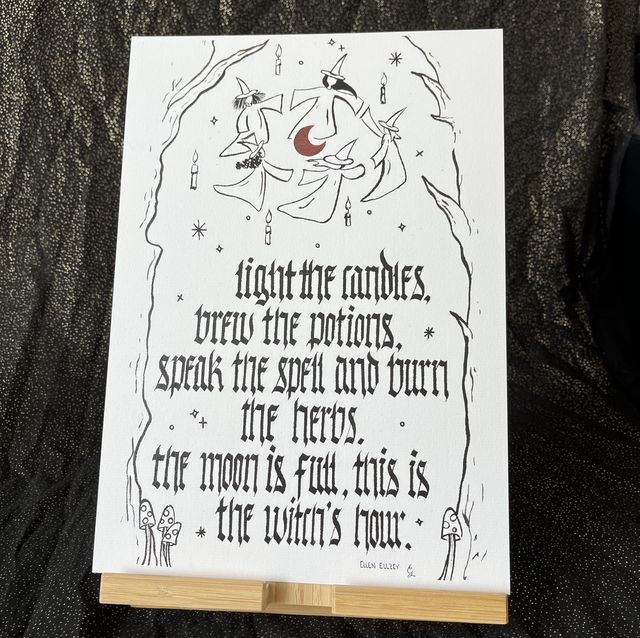 light the candles,
brew the potions,
speak the spell and burn
the herbs.
the moon is full, this is
the witch's hour.
ELLEN ELLZEY